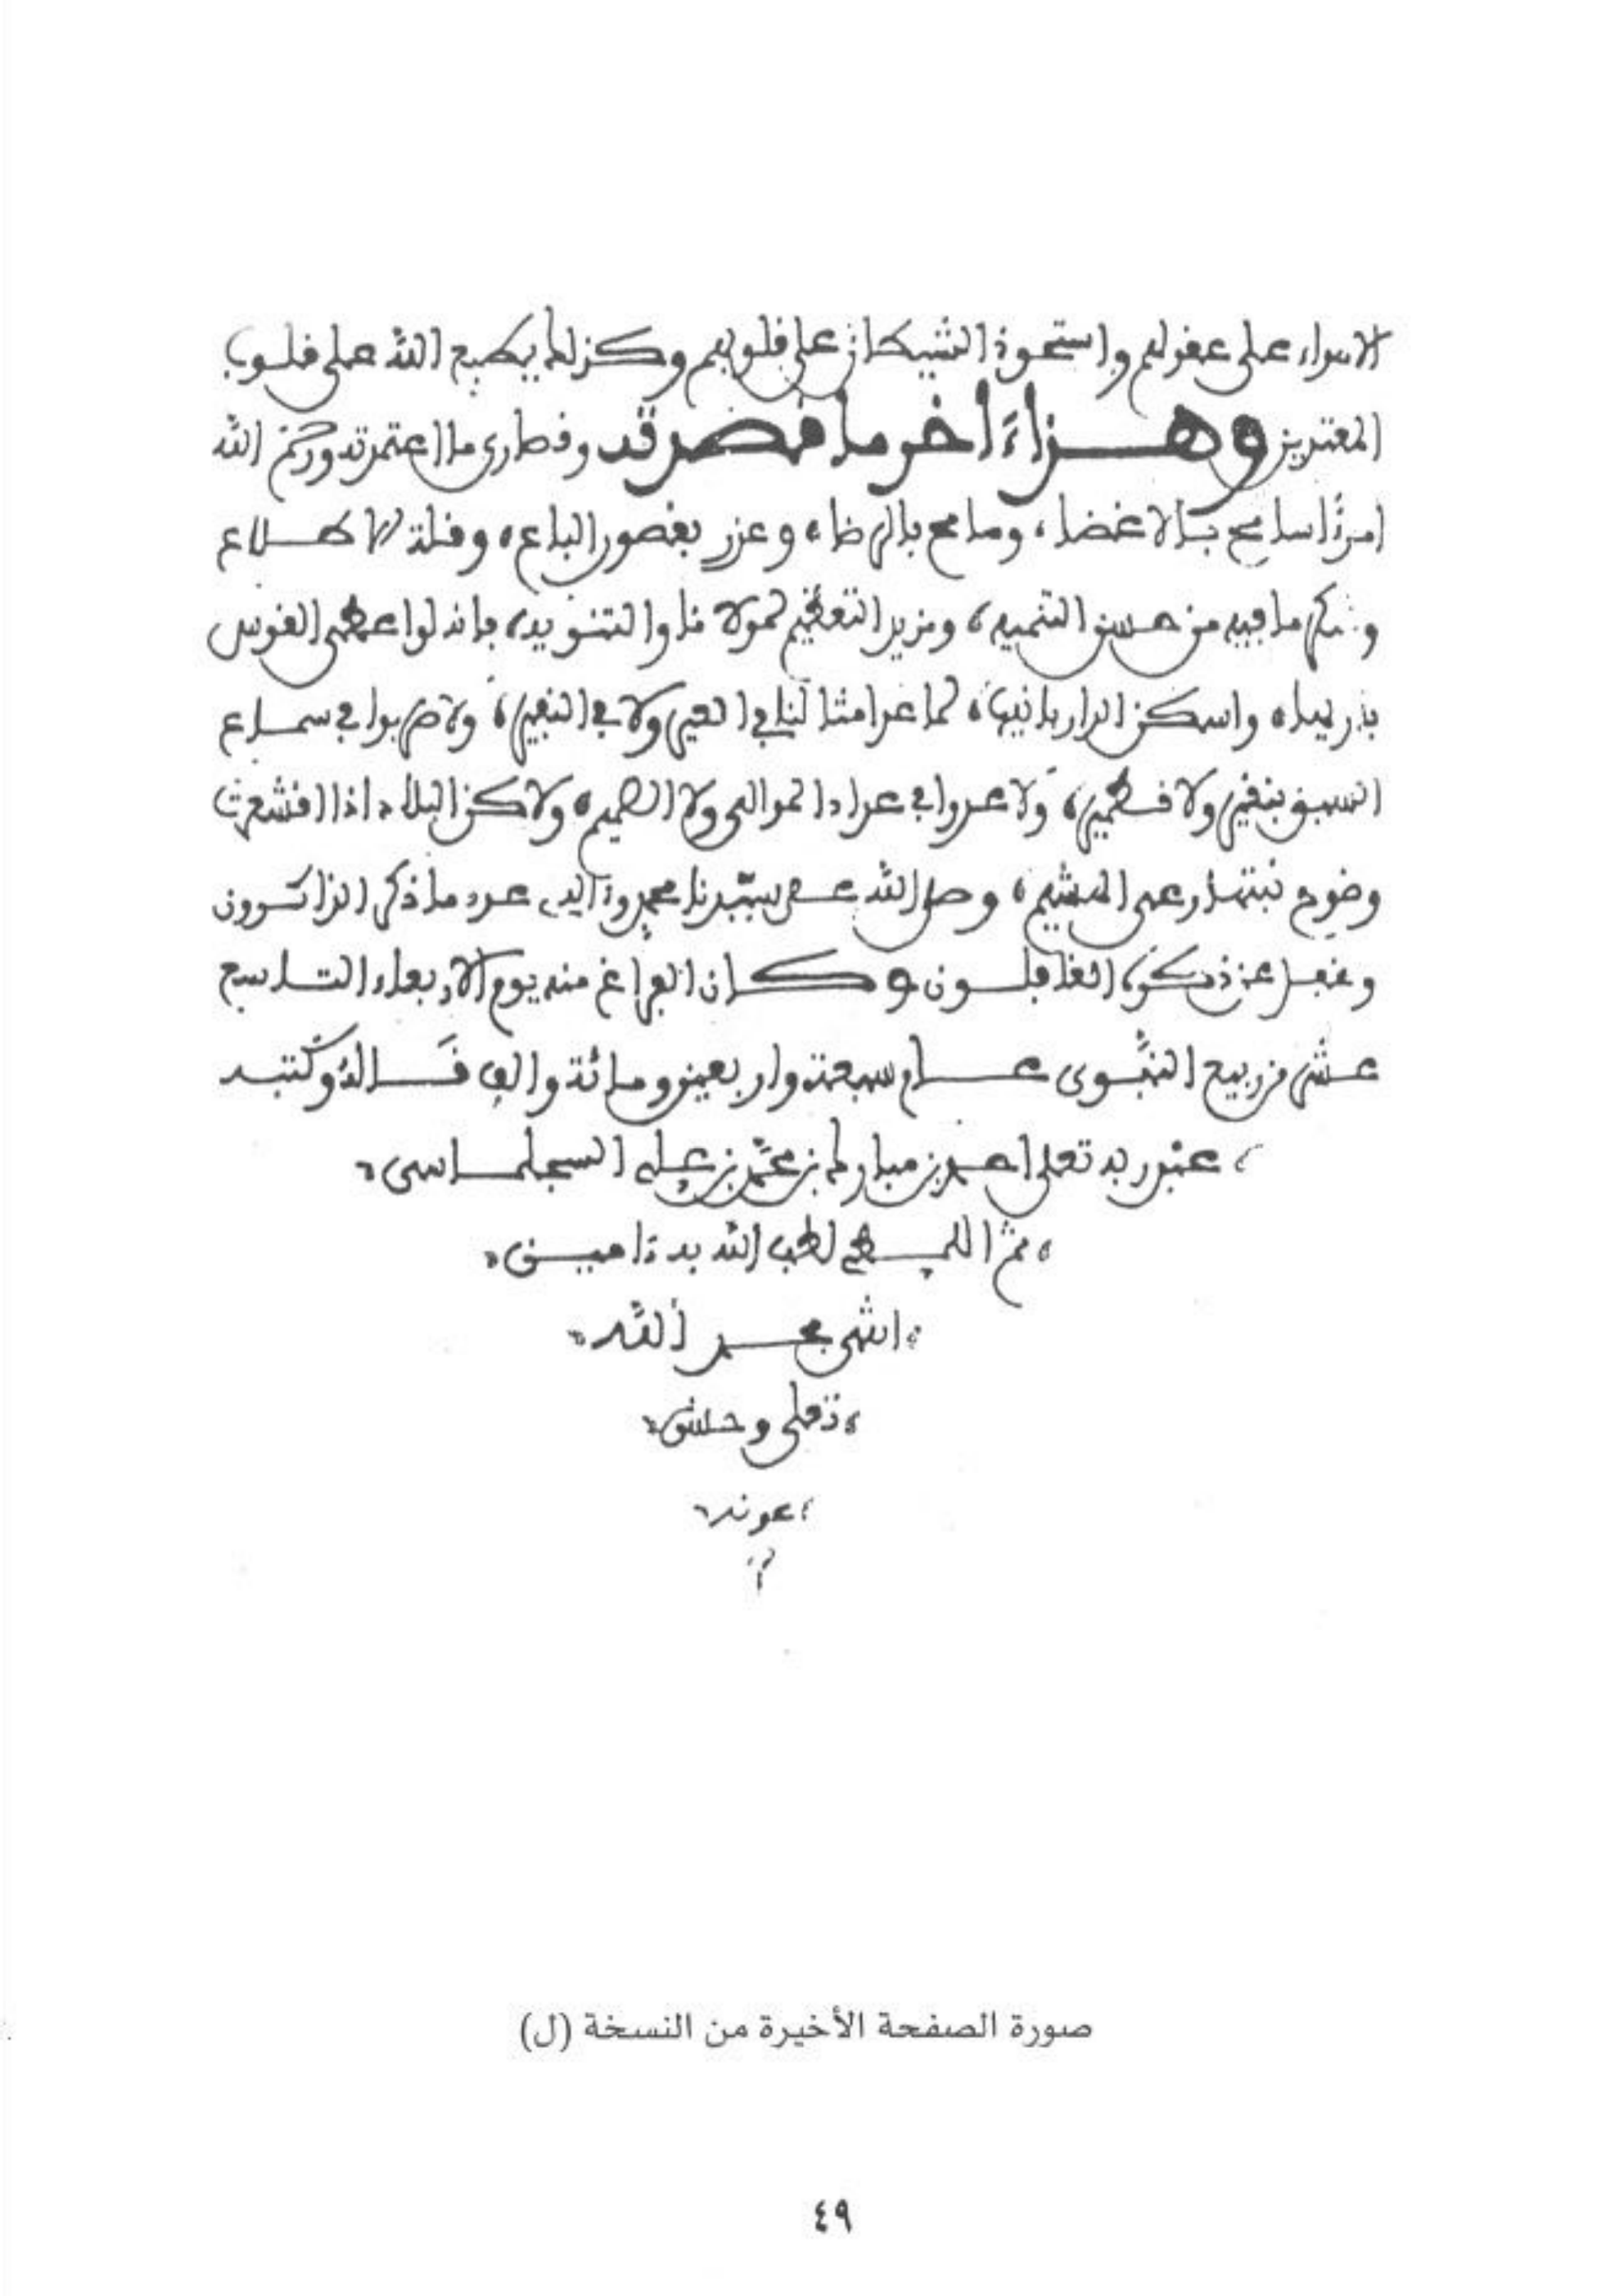 الاهواء على عقولهم واستحوذ الشيطان على قلوبهم وكذلك يطبع الله على قلوب
المعتدين وهذا ءاخر ما قصدته وقصارى ما اعتمدته ورحم الله
امرءا سامح بالاغضا، وسامح بالرضا، وعذر بقصور الباع، وقلة الاطلاع
وشكر ما فيه من حسن التنبيه، ومزيد التعظيم لمولانا والتنويه، فانه لو اعطى القوس
باريها، واسكن الدار بانيها، لما عد امثالنا في العير ولا في النفير، ولا ضربوا في سماع
السبق بنقير ولا قطمير، ولا عدوا في عداد الموالى ولا الصميم، ولاكن البلاد اذا اقشعرت
وضوح نبتها رعى الهشيم، وصلى الله على سيدنا محمد وءاله عدد ما ذكره الذاكرون
وغفل عن ذكره الغافلون وكان الفراغ منه يوم الاربعاء التاسع
عشر من ربيع النبوى عام سبعة واربعين ومائة والف قاله وكتبه
عبد ربه تعلى احمد بن مبارك بن محمد بن على السجلماسى
ثم اللمطى لطف الله به ءامين
انتهى بحمد الله
تعلى وحسن
عونه
صورة الصفحة الأخيرة من النسخة (ل)
٤٩